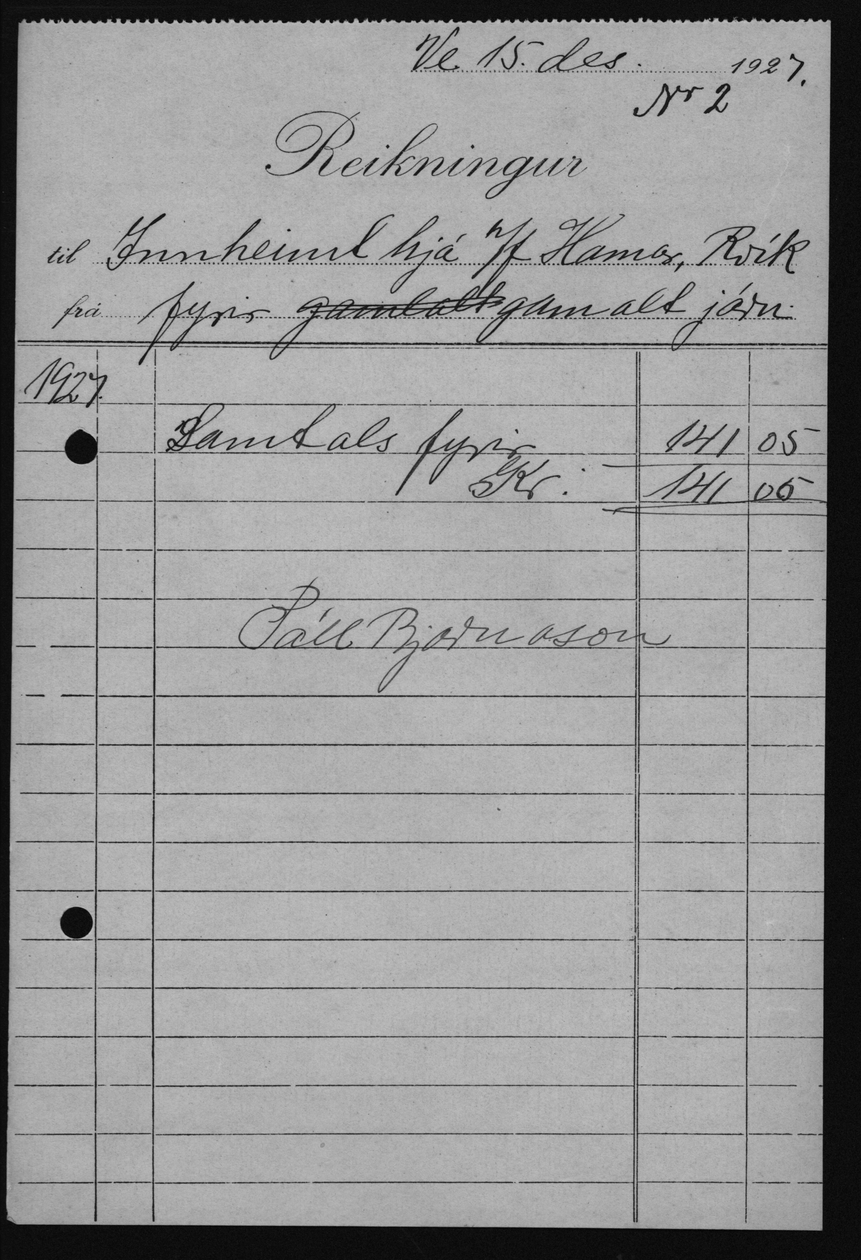 Ve 15. des. 1927.
Nr 2
Reikningur
til Innheimt hjá h/f Hamar, Rvík
frá fyrir gamalt járn.
1927.
Samtals fyrir 141 05
Kr. 141 05
Páll Bjarnason